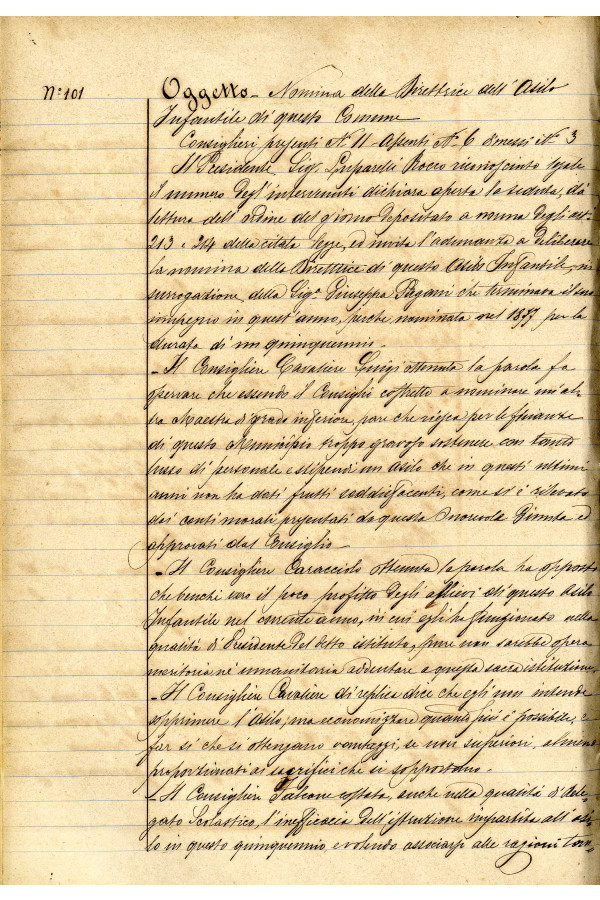 N.° 101
Oggetto - Nomina della Direttrice dell'Asilo
Infantile di questo Comune
Consiglieri presenti N. 11 Assenti N. 6 dimessi N. 3
Il Presidente Sig. Luparelli Rocco riconosciuto legale
il numero degl'intervenuti dichiara aperta la seduta, dà
lettura dell'ordine del giorno depositato a norma degli art.
213 e 214 della citata legge, ed invita l'adunanza a deliberare
la nomina della Direttrice di questo Asilo Infantile, in
surrogazione della Sig.ª Giuseppa Pagani che terminava il suo
impegno in quest'anno, perchè nominata nel 1877 per la
durata di un quinquennio.
- Il Consigliere Cavaliere Luigi ottenuta la parola fa
osservare che essendo il Consiglio costretto a nominare un'al-
tra Maestra di grado inferiore, pare che riesca per le finanze
di questo Municipio troppo gravoso sostenere con tanto
lusso di personale e stipendi un asilo che in questi ultimi
anni non ha dati frutti soddisfacenti, come si è rilevato
dai conti morali presentati da questa Onorevole Giunta ed
approvati dal Consiglio.
- Il Consigliere Caracciolo ottenuta la parola ha opposto
che benchè vero il poco profitto degli allievi di questo Asilo
Infantile nel corrente anno, in cui egli ha funzionato nella
qualità di Presidente del detto istituto, pure non sarebbe opera
meritoria nè umanitaria addentare a questa sacra istituzione.
- Il Consigliere Cavaliere di replica dice che egli non intende
opprimere l'Asilo, ma economizzare quanto più è possibile, e
far sì che si ottengano vantaggi, se non superiori, almeno
proporzionati ai sacrifici che si sopportano.
- Il Consigliere Falcone costata, anche nella qualità di dele-
gato Scolastico, l'inefficacia dell'istruzione impartita all'asi-
lo in questo quinquennio, e volendo associarsi alle ragioni